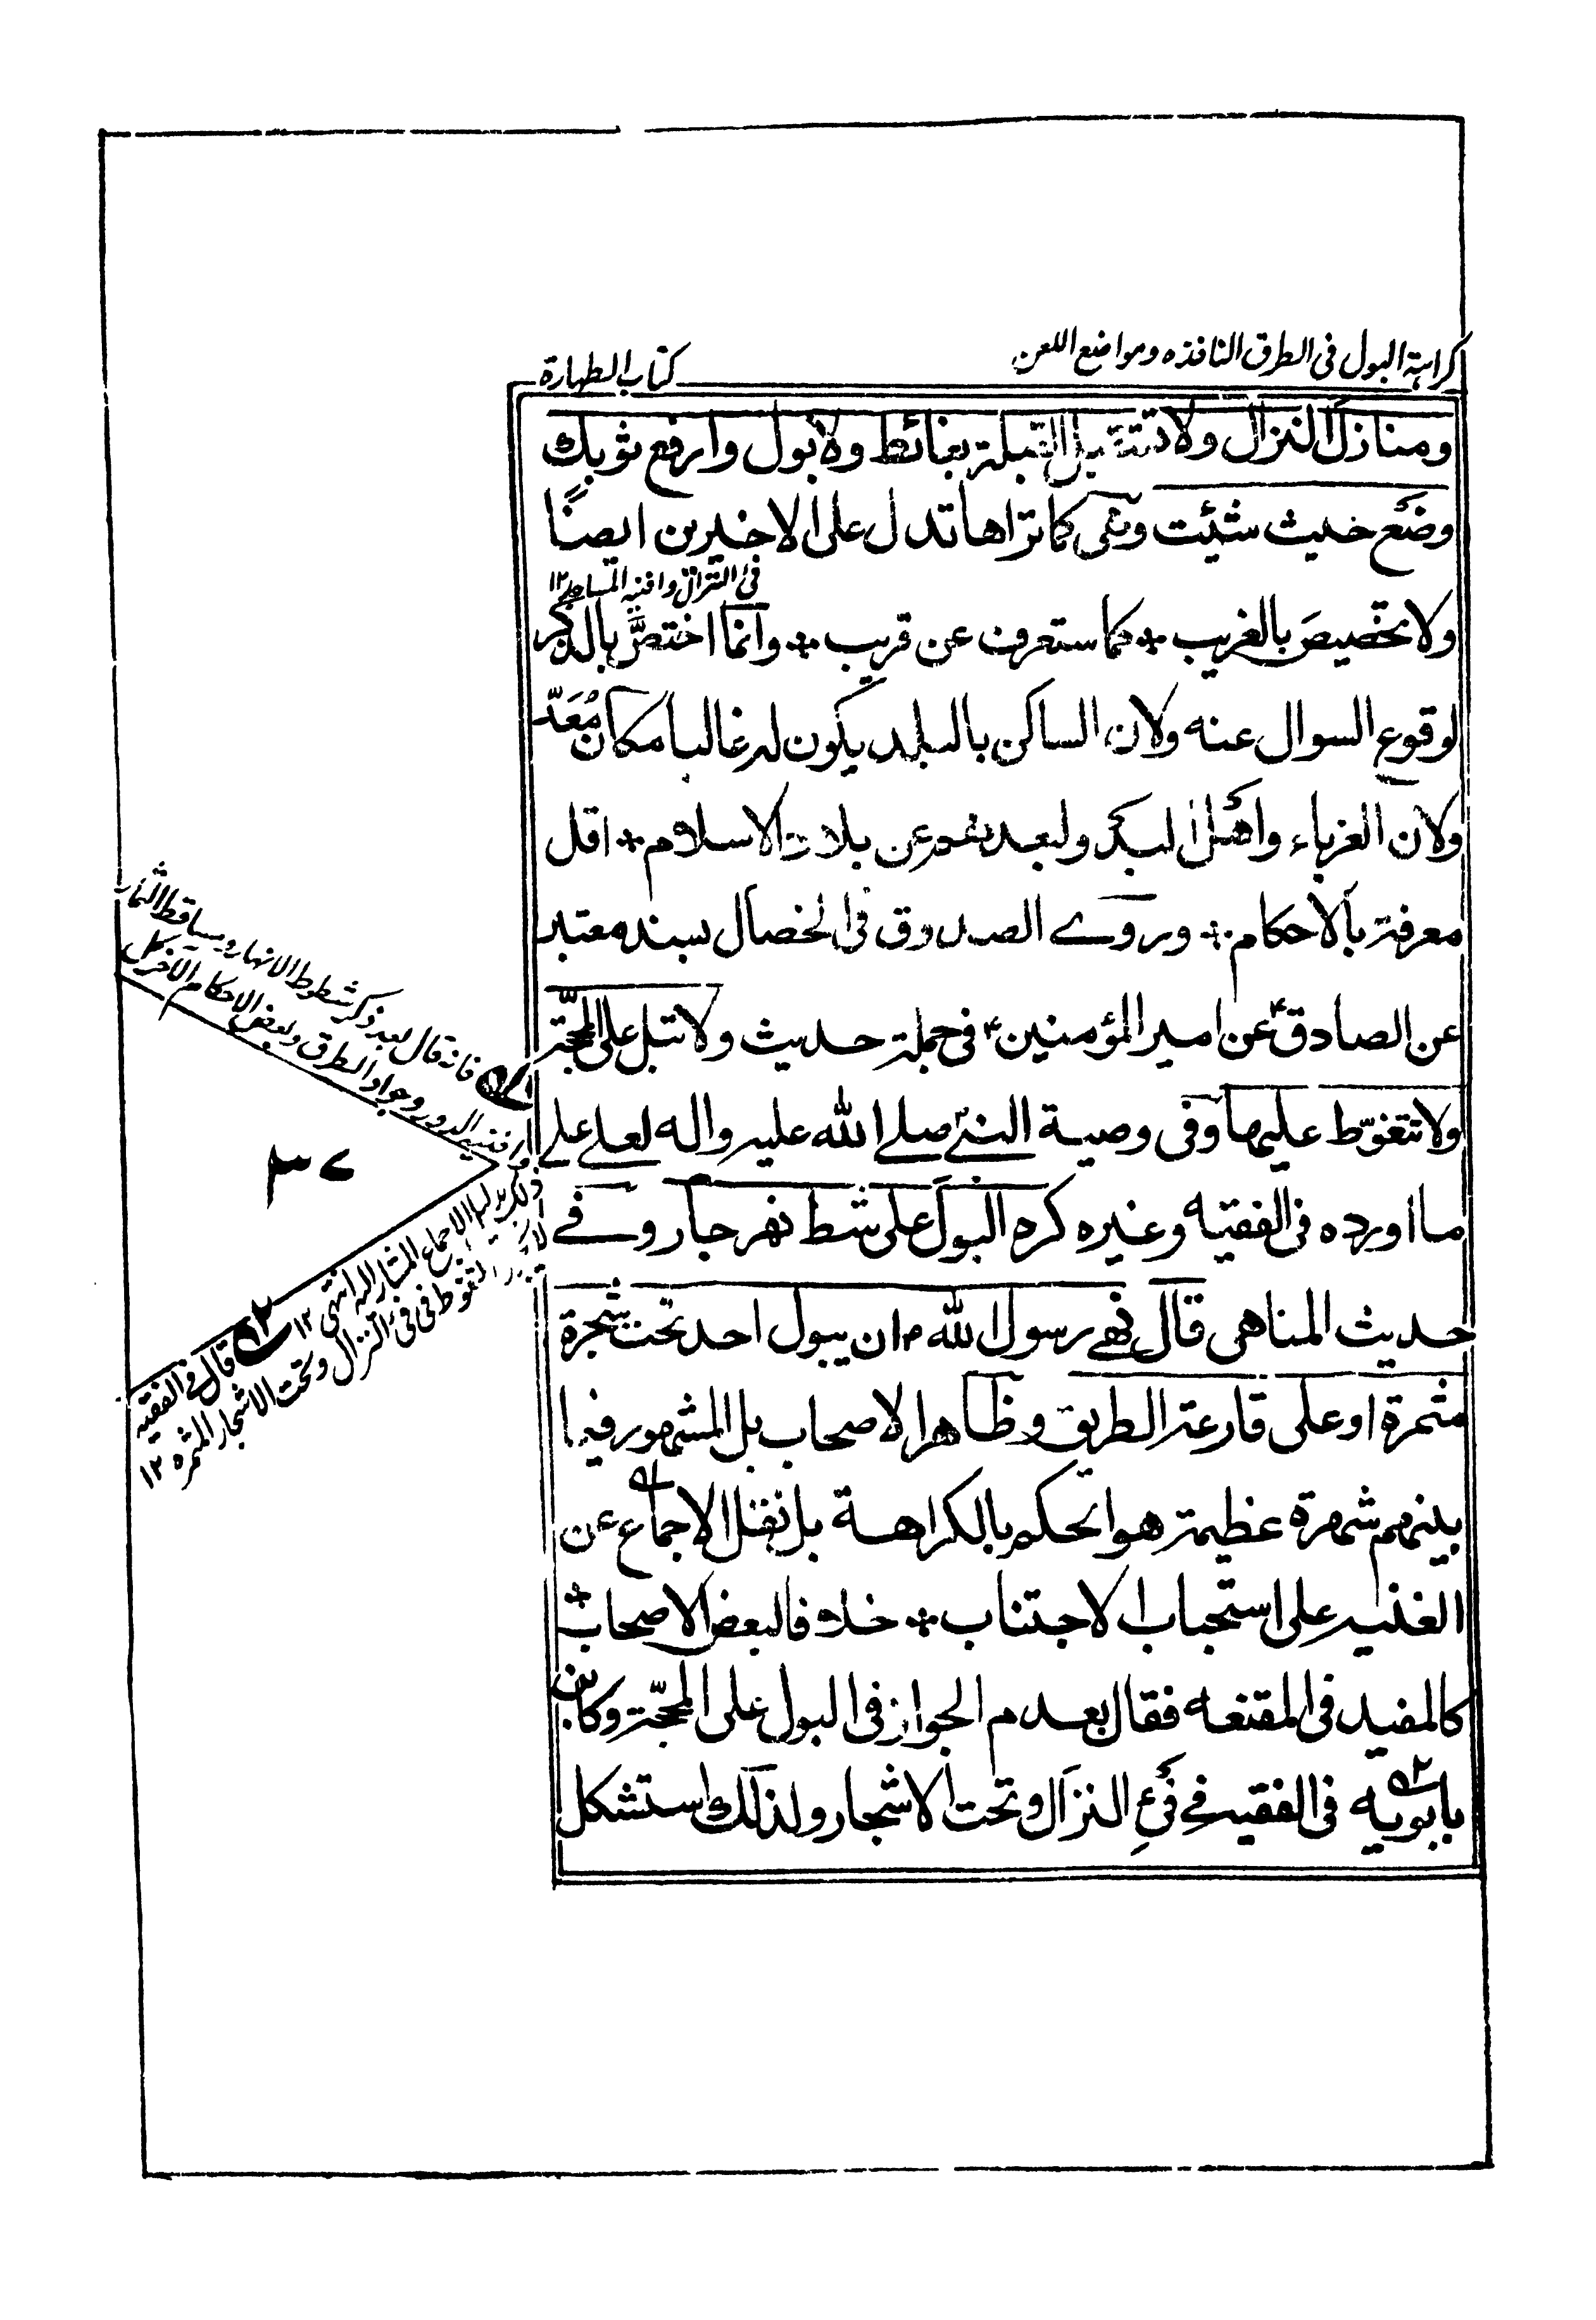 كراهة البول فى الطرق النافذه ومواضع اللعن
كتاب الطهارة
ومنازل النزال ولا تستقبل القبلة بغائط ولا بول وارفع ثوبك
وضَع حيث شئت وهى كما تراها تدل على الاخيرين ايضًا
فئ النزال وافنية المساجد ١٢
ولا تخصيصَ بالغريب ٭ كما ستعرف عن قريب ٭ وانّما اختصَّ بالذكر
لوقوع السوال عنه ولان الساكن بالبلد يكون له غالبا مكان مُعَدّ
ولان الغرباء واهل البلد ولبعدهم عن بلاد الاسلام ٭ اقل
معرفة بالاحكام ٭ وروے الصدوق فى الخصال بسند معتبر
عن الصادق ؑ عن امير المؤمنين ؑ فى جملة حديث ولا تبل على المحجّة
ولا تتغوّط عليها وفى وصية النبى ؐ صلے الله عليه واله لعلے علے
ما اورده فى الفقيه وغيره كره البول على شط نهر جار وفے
حديث المناهى قال نهى رسول الله ؐ ان يبول احد تحت شجرة
مثمرة او على قارعة الطريق وظاهر الاصحاب بل المشهور فيما
بينهم شهرة عظيمة هو الحكم بالكراهة بل نقل الاجماع عن
الغنيه على استحباب الاجتناب ٭ خلافا لبعض الاصحاب ٭
كالمفيد فى المقنعه فقال بعدم الجواز فى البول على المحجّة وكابن
بابويه فى الفقيه فے فئ النزال وتحت الاشجار ولذلك استشكل
فانه قال بعد ذكر شطوط الانهار ومساقط الثمار
وافنية الدور وجواد الطرق وبعض الاحكام الآخر كل
ذلك بدليل الاجماع المشار اليه انتهى ١٢
٣٧
قال فى الفقيه
لا يجوز التغوط فى فئ النزال وتحت الاشجار المثمره ١٢